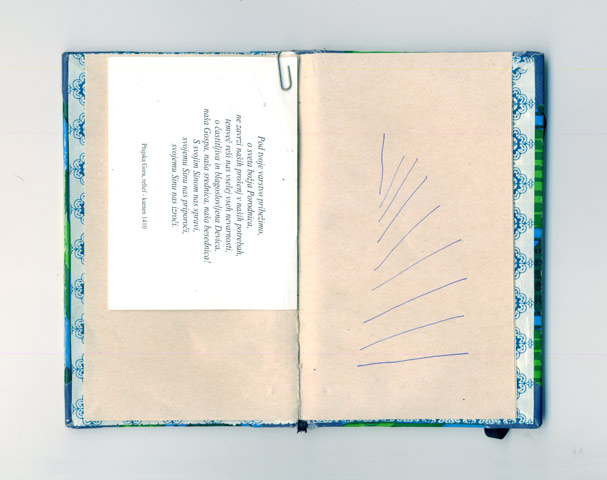 Pod tvoje varstvo pribežimo,
o sveta božja Porodnica,
ne zavrzi naših prošenj v naših potrebah,
temveč reši nas vselej vseh nevarnosti,
o častitljiva in blagoslovljena Devica,
naša Gospa, naša srednica, naša besednica!
S svojim Sinom nas spravi,
svojemu Sinu nas priporoči,
svojemu Sinu nas izroči.
Ptujska Gora, relief - kamen 1410